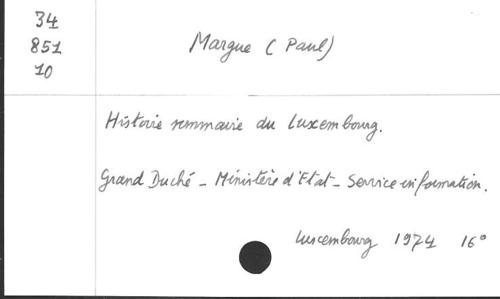 34
851
10
Margue (Paul)
Histoire sommaire du Luxembourg.
Grand Duché - Ministère d'Etat - Service information.
Luxembourg 1974 16°